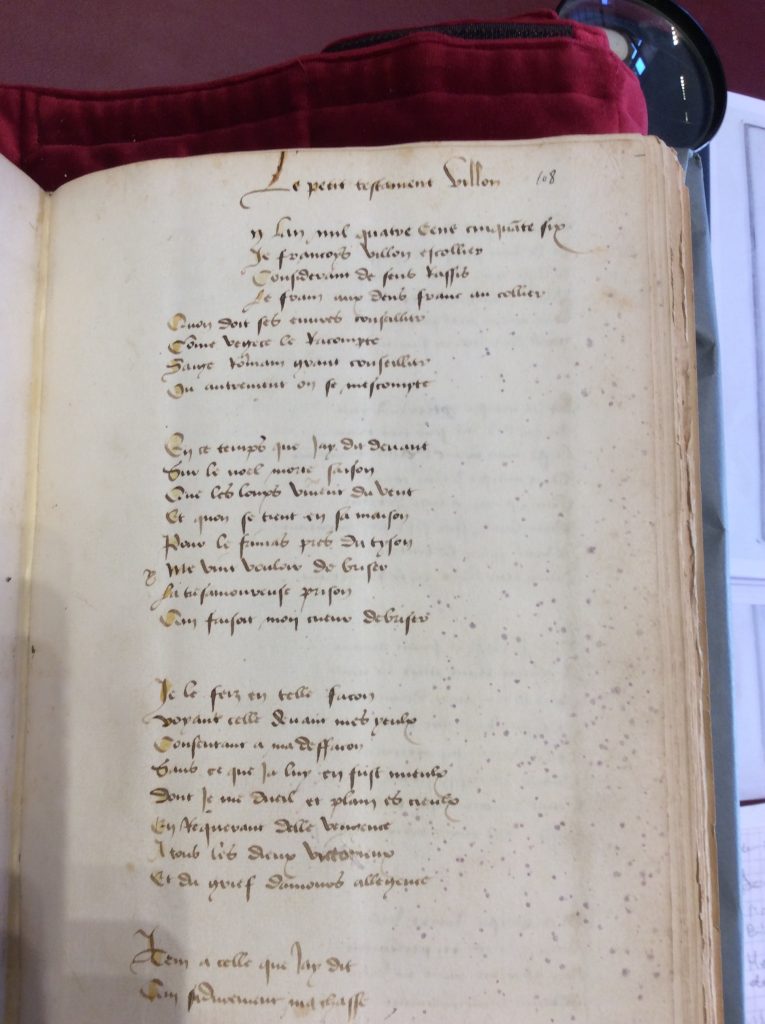 Le petit testament Villon 108
n Lan mil quatre Cens cinquāte six
Je francoys Villon escollier
Considerant de sens Rassis
Le frain aux dens franc au collier
Quon doit ses euures conseillier
Cōme vegece le Racompte
Saige Rōmain grant conseillier
Ou autrement on se mescompte
En ce temps que Jay dit deuant
Sur le noel morte saison
Que les loups viuent du vent
Et quon se tient en sa maison
Pour le frimas pres du tyson
Me vint vouloir de briser
La tresamoureuse prison
Qui faisoit mon cueur debriser
Je le feiz en telle facon
voyant celle deuant mes yeulx
Consentant a ma deffacon
Sans ce que Ja luy en fust mieulx
dont Je me dueil et plain es cieulx
En Requerant delle vengence
A tous les dieux
Et du grief damours allegence
Item a celle que Jay dit
Qui si durement ma chasse